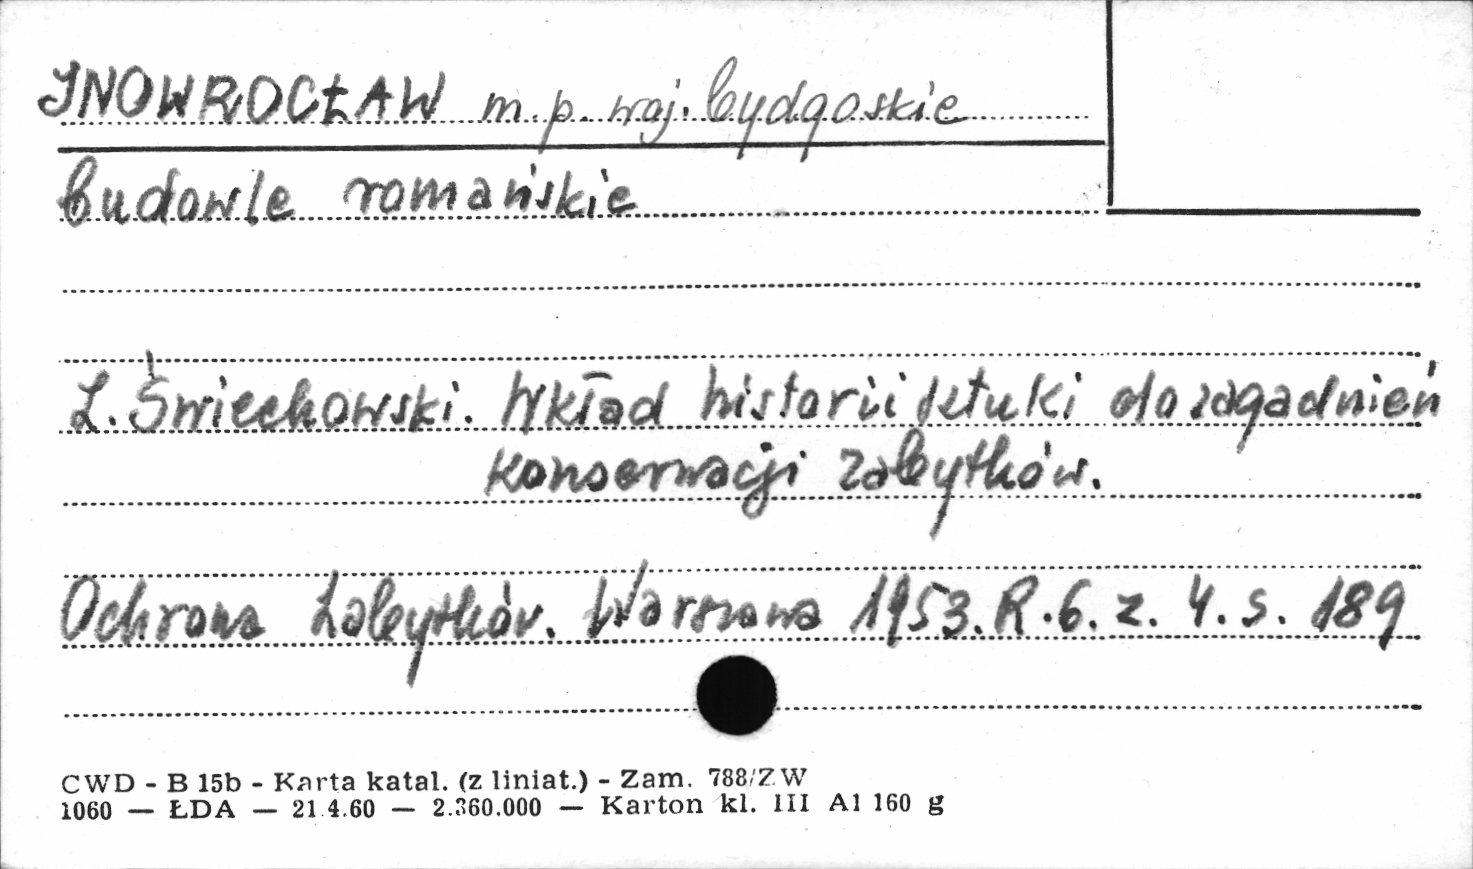 INOWROCŁAW m.p. woj. bydgoskie
budowle romańskie
Z. Świechowski. Wkład historii sztuki do zagadnień
konserwacji zabytków.
Ochrona Zabytków. Warszawa 1953. R.6. z. 4. s. 189
CWD - B 15b - Karta katal. (z liniat.) - Zam. 788/ZW
1060 — ŁDA — 21.4.60 — 2.360.000 — Karton kl. III A1 160 g